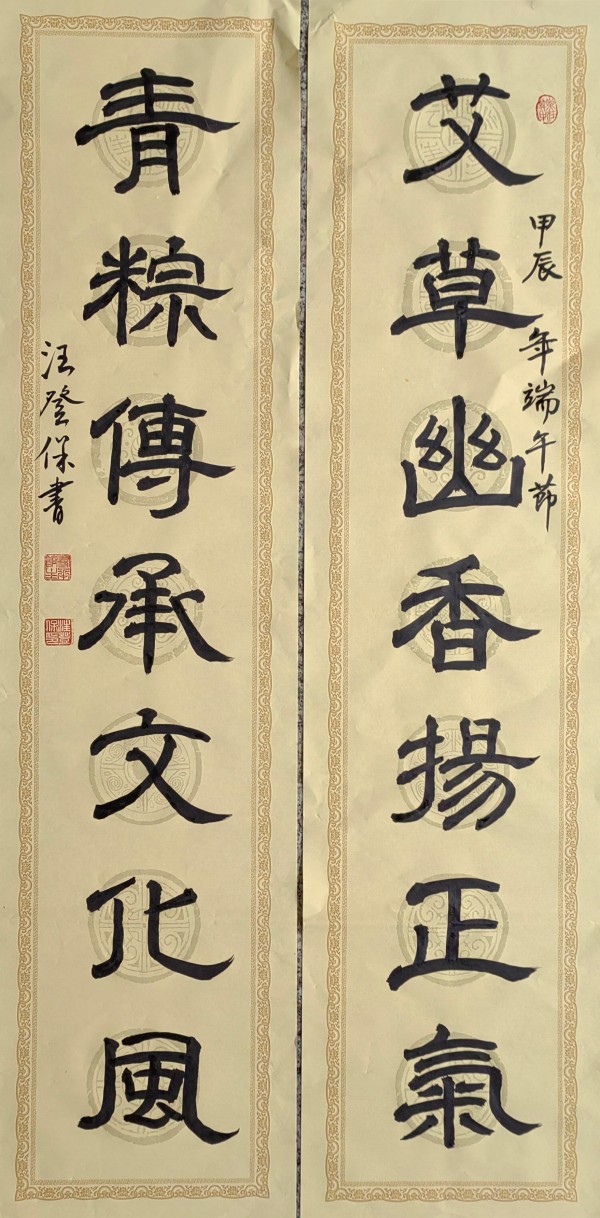 艾草幽香揚正氣
甲辰年端午節
青粽傳承文化風
汪登保書